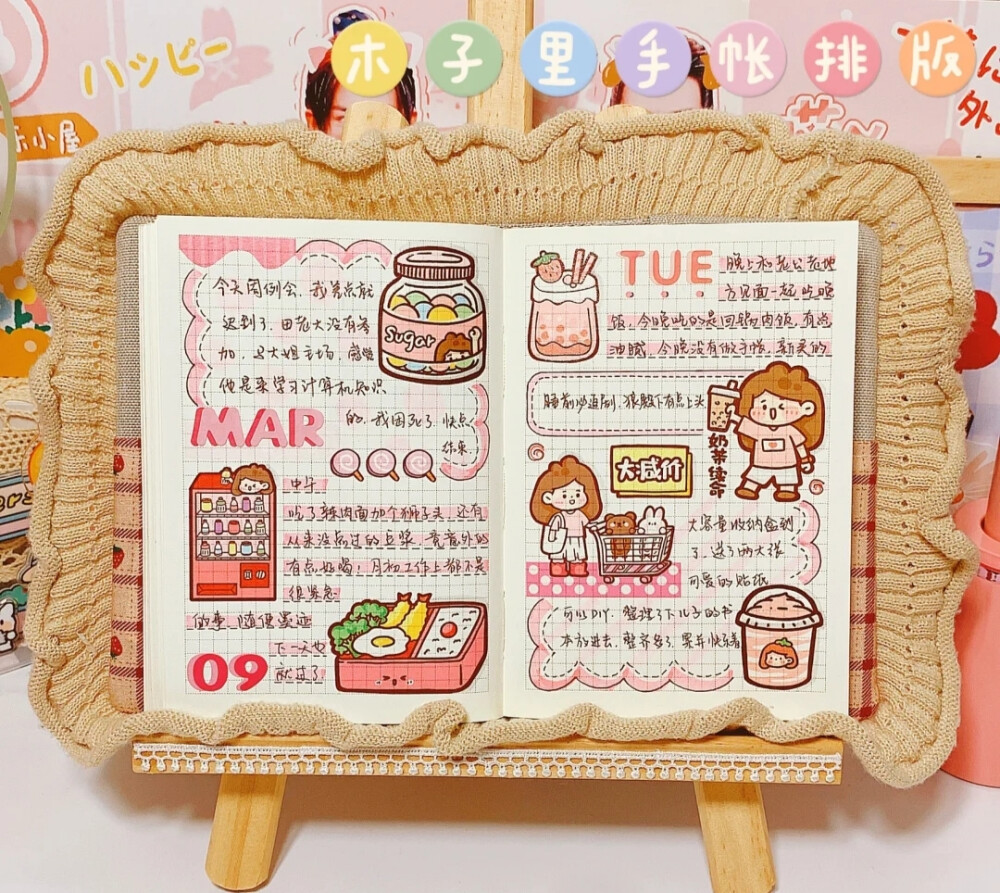 木子里手帐排版
ハッピー
小屋
外
今天周例会,我差点就
迟到了,田老大没有参
加,马大姐主场,感觉
他是来学习计算机知识
MAR
的.我困死了,快点
结束,
Sugar
中午
吃了辣肉面加个狮子头,还有
从来没点过的豆浆,竟意外的
有点好喝!月初工作上都不是
很紧急
做事,随便墨迹
下一天也
就过了!
09
TUE
晚上和老公在地
方见面一起吃晚
饭,今晚吃的是回锅肉饭,有些
油腻,今晚没有做手帐,新买的
睡前沙追剧,狼殿下有点上头
奶茶续命
大减价
大容量收纳盒到
了,送了两大张
可爱的贴纸
可以DIY.整理了下儿子的书
本放进去,整齐多了.累并快乐着